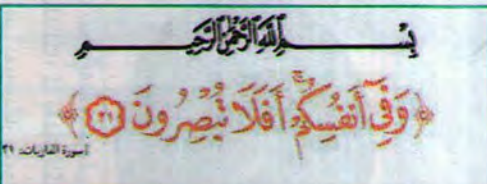 بِسْمِ اللَّهِ الرَّحْمَٰنِ الرَّحِيمِ
﴿ وَفِي أَنفُسِكُمْ ۚ أَفَلَا تُبْصِرُونَ ٢١ ﴾
[سورة الذاريات: ٢١